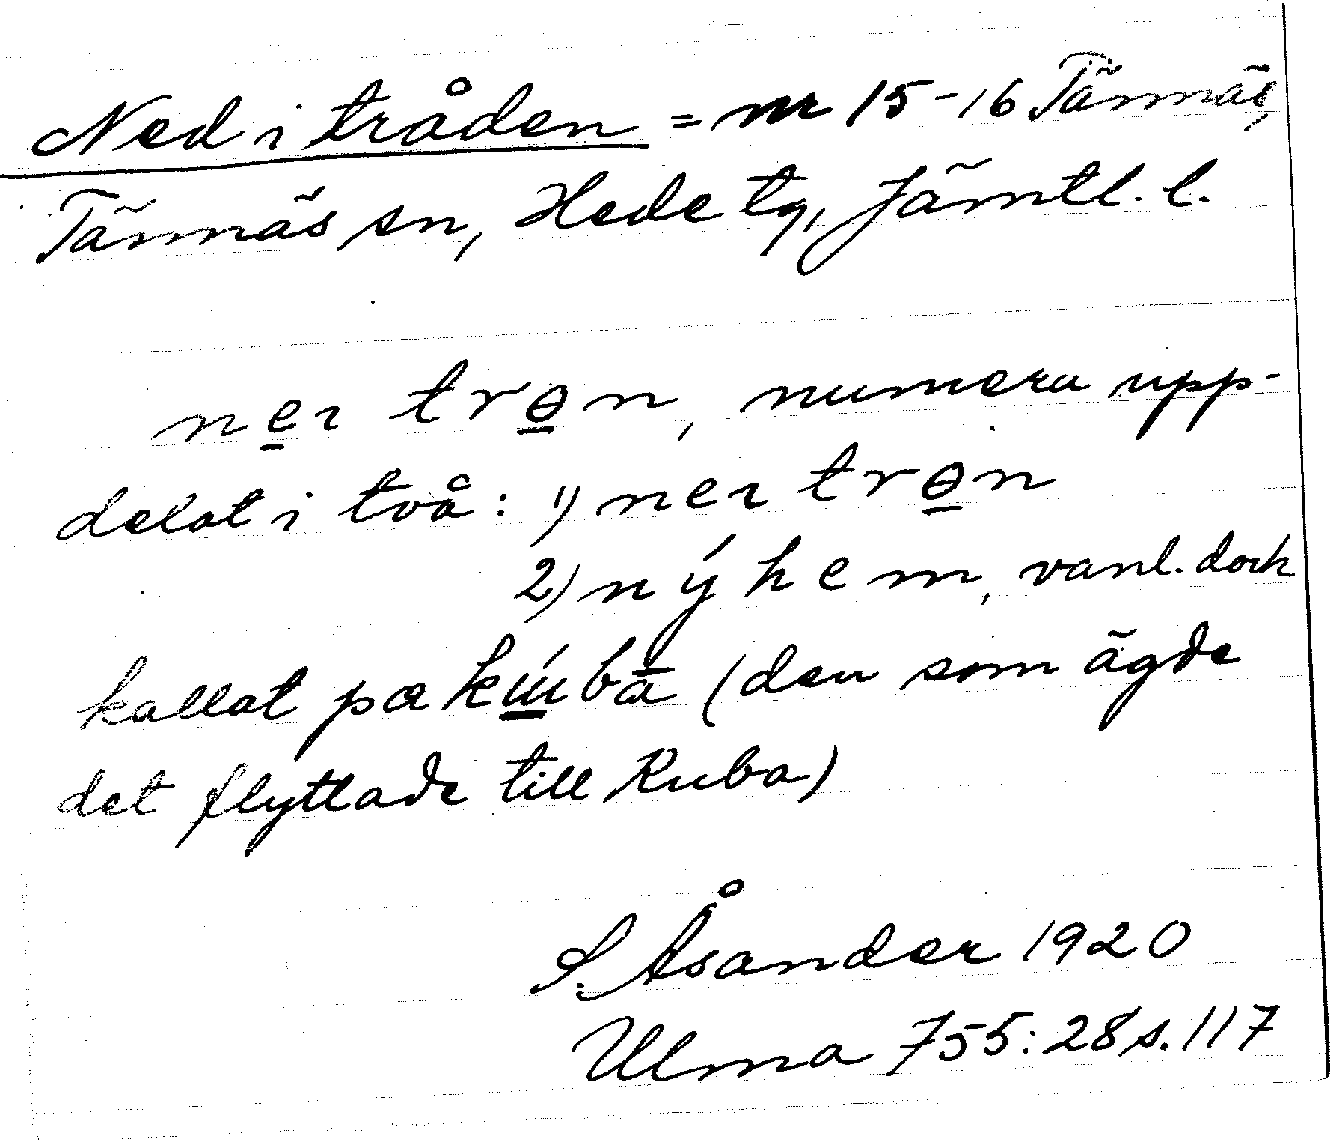 Ned i tråden = nr 15-16 Tännäs,
Tännäs sn, Hede tg, Jämtl. l.
ner trɵn, numera upp-
delat i två: 1) ner trɵn
2) nýhem, vanl. dock
kallat pa kúba (den som ägde
det flyttade till Kuba)
S. Åsander 1920
Ulma 755:28 s. 117